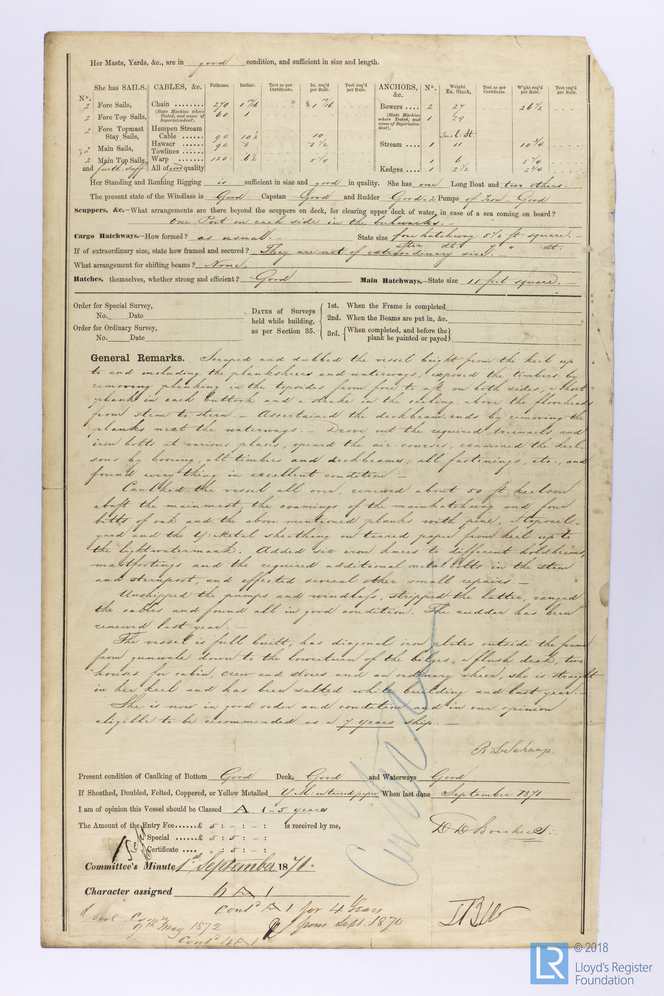 Her Masts, Yards, &c., are in good condition, and sufficient in size and length.
She has SAILS. CABLES, &c. Fathoms. Inches. Test as per Certificate. In. req'd per Rule. Test req'd per Rule. ANCHORS, &c. Nº. Weight Ex. Stock. Test as per Certificate. W'ght req'd per Rule. Test req'd per Rule.
Nº.
2 Fore Sails, Chain 270 Bowers 2 27 26½
(State Machine where Tested, and name of Superintendent).
2 Fore Top Sails, 60 1 1 24
2 Fore Topmast Stay Sails, Hempen Stream Cable 90 10½ 10
2 Main Sails, Hawser 90 Stream 1 11 10¾
Towlines
2 Main Top Sails, Warp 120 6½ 1 6 5¼
and All of good quality Kedges 1 2½
Her Standing and Running Rigging is sufficient in size and good in quality. She has one Long Boat and two others.
The present state of the Windlass is Good Capstan Good and Rudder Good & Pumps of Iron. Good
Scuppers, &c.—What arrangements are there beyond the scuppers on deck, for clearing upper deck of water, in case of a sea coming on board?
One Port on each side in the bulwarks.—
Cargo Hatchways.—How formed? as usual.— State size fore hatchway 5½ ft square.—
after dt. 7 " dt.
If of extraordinary size, state how framed and secured? They are not of extraordinary size.—
What arrangement for shifting beams? None,
Hatches. themselves, whether strong and efficient? Good Main Hatchways.—State size 11 feet square.—
Order for Special Survey, No. Date
Order for Ordinary Survey, No. Date
DATES of Surveys held while building, as per Section 35.
1st. When the Frame is completed
2nd. When the Beams are put in, &c.
3rd. When completed, and before the plank be painted or payed
General Remarks. Scraped and rubbed the vessel bright from the keel up
to and including the planksheers and waterways, exposed the timbers by
removing planking in the topsides from fore to aft on both sides, a short
plank in each buttock and a strake in the ceiling above the floorheads
from stem to stern.— Ascertained the deckbeam ends by removing the
planks next the waterways.— Drove out the required treenails and
iron bolts at various places, opened the air courses, examined the keel-
sons by boring, all timbers and deckbeams, all fastenings, etc., and
found everything in excellent condition.—
Caulked the vessel all over, renewed about 50 ft keelson
abaft the mainmast, the coamings of the mainhatchway and four
bitts of oak and the above mentioned planks with pine, 1 topsail-
yard and the Y. Metal sheathing on tarred paper from keel up to
the lightwatermark. Added six iron knees to different holdbeams,
mastfortings and the required additional metalbolts in the stem
and sternpost, and effected several other small repairs.—
Unshipped the pumps and windlass, stripped the latter, ranged
the cables and found all in good condition. The rudder has been
renewed last year.—
The vessel is full built, has diagonal iron plates outside the frame
from gunwale down to the lowerturn of the bilges, a flush deck, two
houses for cabin, crew and stores and an ordinary sheer, she is straight
in her keel and has been salted while building and last year.—
She is now in good order and condition and in our opinion
eligible to be recommended as a 7 years ship.—
Present condition of Caulking of Bottom Good Deck, Good and Waterways Good
If Sheathed, Doubled, Felted, Coppered, or Yellow Metalled Y.M. on tarred paper When last done September 1871
I am of opinion this Vessel should be Classed A 1 5 years
The Amount of the Entry Fee £ 5 : - : - is received by me,
Special £ 5 : - : -
Certificate - : 5 : -
Committee's Minute 1st September 1871.
Character assigned A 1
Contd A 1 for 4 Years
from Sept. 1870
May 1872
© 2018
LR
Lloyd's Register
Foundation